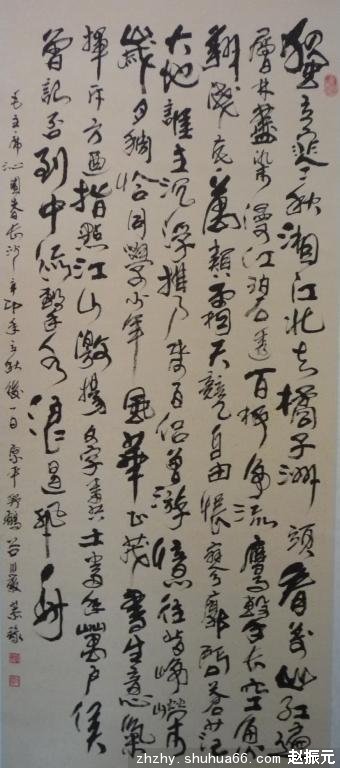 獨立寒秋湘江北去橘子洲頭看萬山紅遍
層林盡染漫江碧透百舸爭流鷹擊長空魚
翔淺底萬類霜天競自由悵寥廓問蒼茫
大地誰主沉浮携來百侣曾游憶往昔崢嶸
歲月稠恰同學少年風華正茂書生意氣
揮斥方遒指點江山激揚文字糞土當年萬户侯
曾記否到中流擊水浪遏飛舟
毛主席沁園春長沙辛卯年立秋後一日原平野鶴
zhzhy.shuhua66.com 赵振元